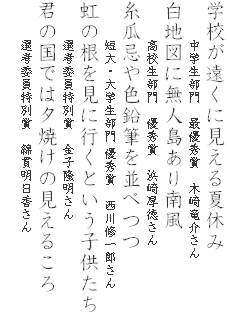 学校が遠くに見える夏休み
中学生部門　最優秀賞　木崎竜介さん
白地図に無人島あり南風
高校生部門　優秀賞　浜崎厚徳さん
糸瓜忌や色鉛筆を並べつつ
短大・大学生部門　優秀賞　西川修一郎さん
虹の根を見に行くという子供たち
選考委員特別賞　金子隆明さん
君の国では夕焼けの見えるころ
選考委員特別賞　綿貫明日香さん